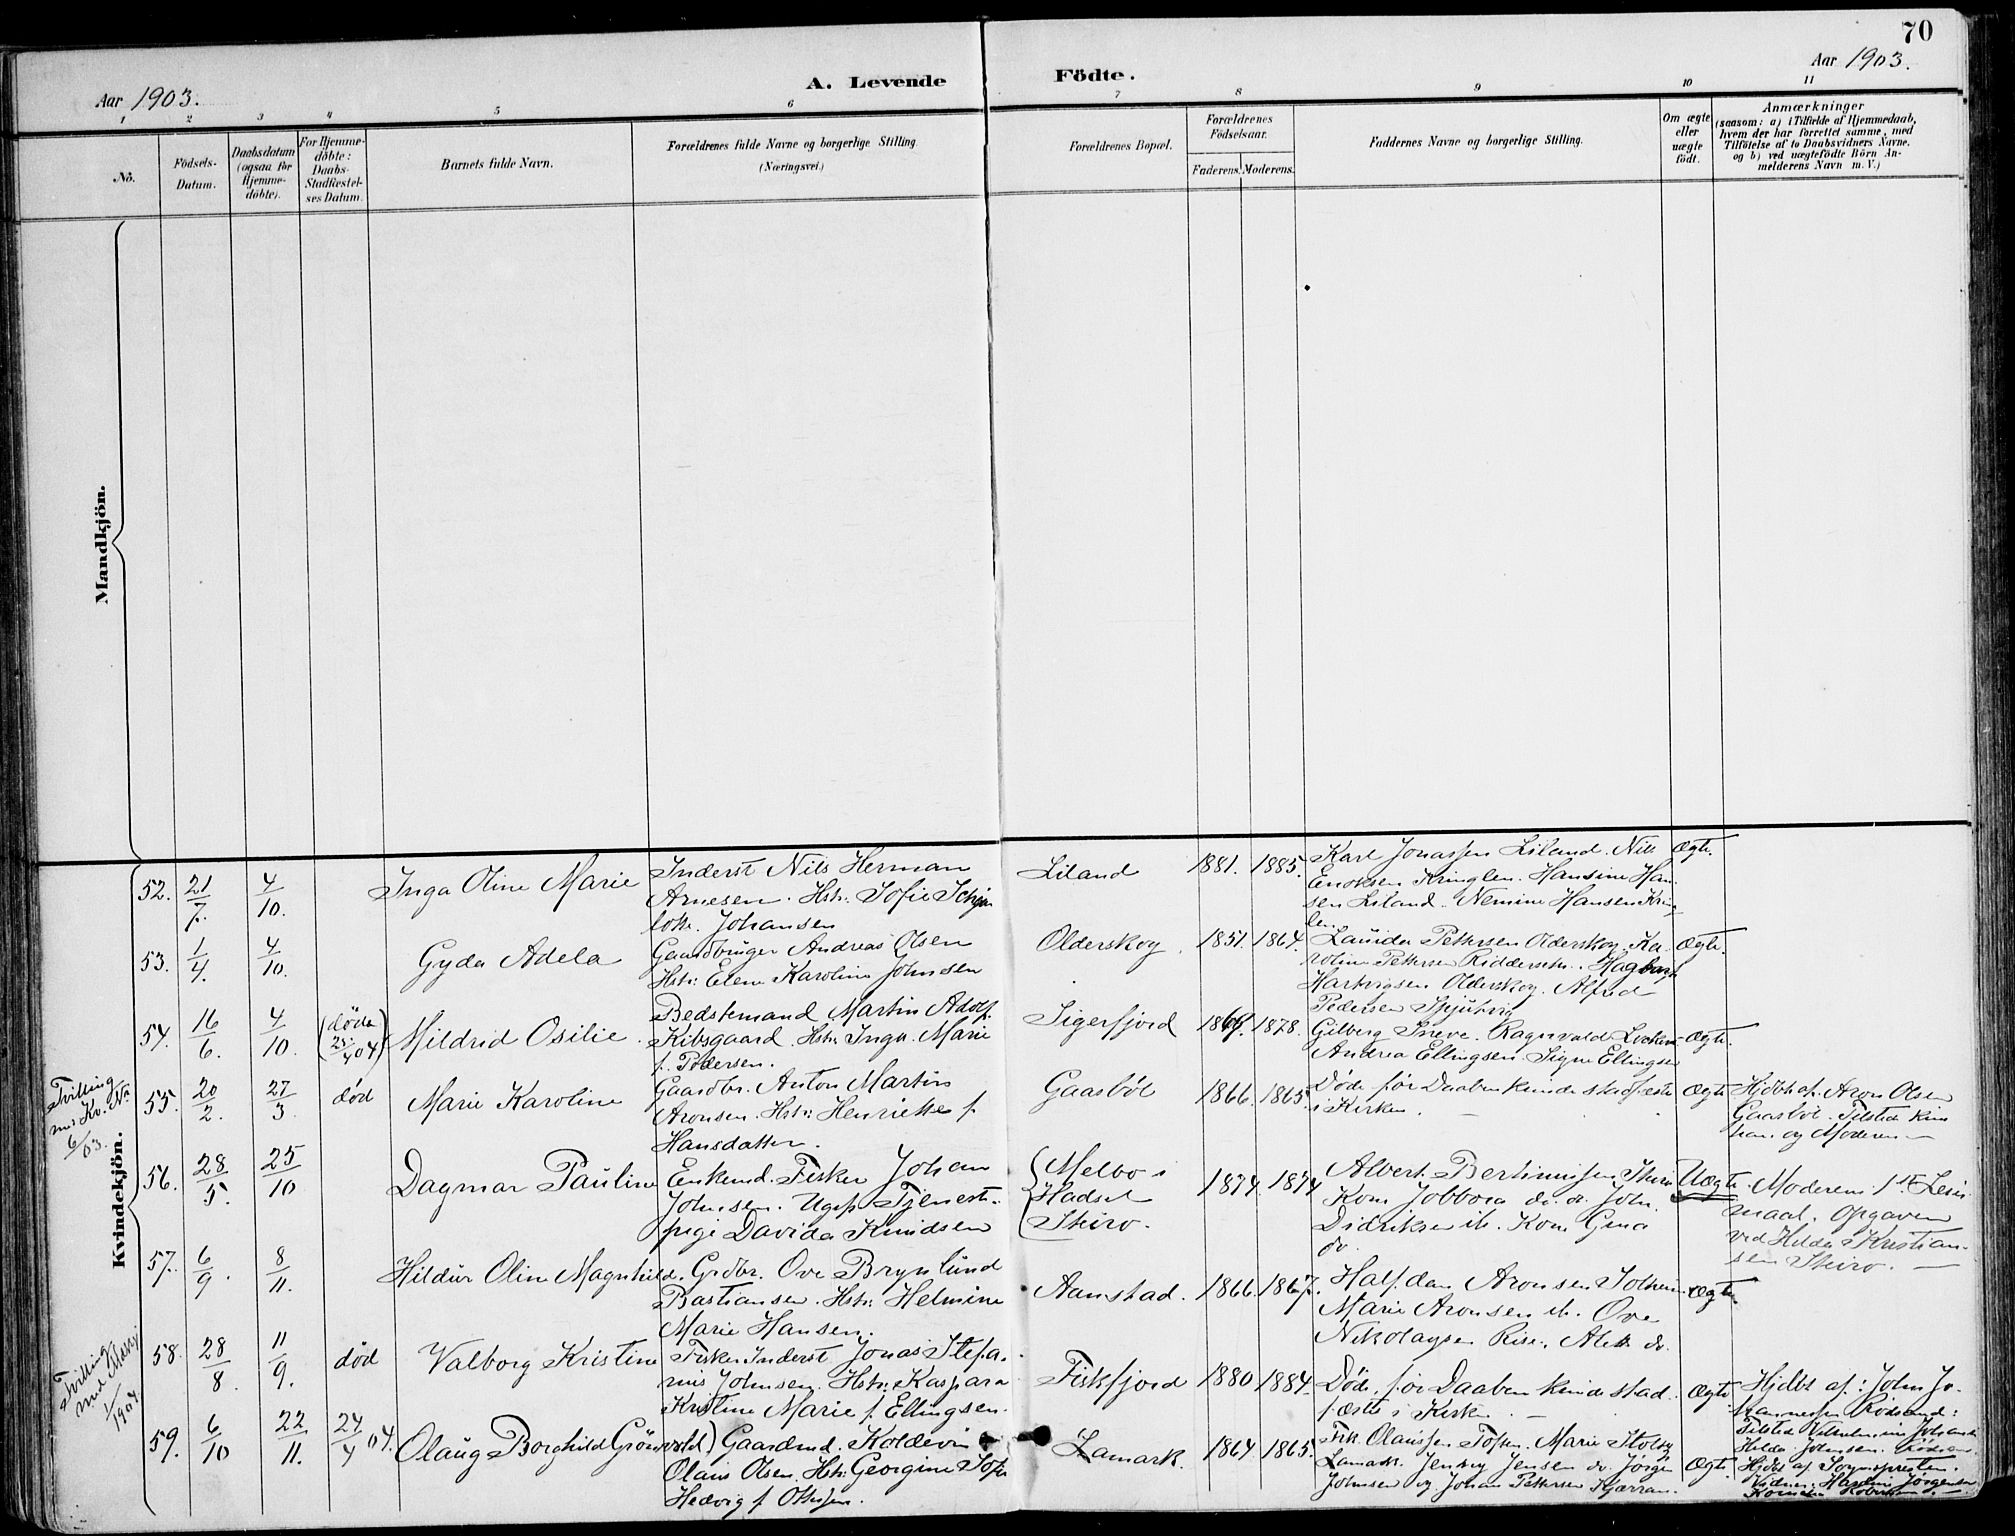 70
Aar 1903.
A. Levende Födte.
Aar 1903.
1 2 3 4 5 6 7 8 9 10 11
No.
Födsels-
Datum.
Daabsdatum
(ogsaa for
Hjemme-
döbte).
For Hjemme-
döbte:
Daabs-
Stadfæstel-
ses Datum.
Barnets fulde Navn.
Forældrenes fulde Navne og borgerlige Stilling
(Næringsvei.)
Forældrenes Bopæl.
Forældrenes
Födselsaar.
Faderens. Moderens.
Faddernes Navne og borgerlige Stilling.
Om ægte
eller
uægte
födt.
Anmærkninger
(saasom: a) i Tilfælde af Hjemmedaab,
hvem der har forrettet samme, med
Tilföielse af to Daabsvidners Navne,
og b) ved uægtefödte Börn An-
melderens Navn m. V.)
Mandkjön.
Kvindekjön.
52. 21/7. 4/10. Inga Oline Marie
Inderst Nils Herman
Arnesen. Hstr. Sofie
Johansen
Liland 1881. 1885.
Karl Jonassen Liland. Nils
Enoksen Kringlen. Hansine Han-
sen Liland. Nemine Hansen Krin-
len
Ægte.
53. 1/4. 4/10. Gyda Adela
Gaardbruger Andreas Olsen
Hstr. Elen Karoline Johnsen
Olderskog. 1851. 1864.
Petersen Olderskog. Ka-
roline Pettersen
Hartvigsen Olderskog. Alfred
Pedersen
Ægte.
54. 16/6. 4/10. (døde 25/4 04) Mildrid Osilie.
Bedstemand Martin Adolf
Kibsgaard. Hstr. Inga Marie
f. Pedersen.
Sigerfjord 1878.
Ragnvald
Andrea Ellingsen. Signe Ellingsen
Ægte.
Tvilling
med Kv. No
6/03.
55. 20/2. 27/3 død Marie Karoline
Gaardbr. Anton Martin
Aronsen. Hstr. Henriette f.
Hansdatter.
Gaasböl 1866. 1865.
Døde før Daaben kunde stadfæstes
i Kirken. —
Ægte
Hjdbt af. Aron Olsen
Gaasböl. Tilsted
og Moderen —
56. 28/5. 25/10 Dagmar Pauline
Enkemd. Fisker Johan
Johnsen. Ugift Tjeneste-
pige Davida Knudsen
Melbo i
Hadsel
Skiro.
1874. 1874
Albert
Kone do. John
Didriksen ib. Kone Gina
do.
Uægte.
Moderens 1ste Leier-
maal. Opgaven
ved Hilda Kristian-
sen Skiro. —
57. 6/9. 8/11. Hildur Olin Magnhild.
Grdbr. Ove Brynlund
Bastiansen. Hstr. Helmine
Marie Hansen.
Aanstad. 1866. 1867.
Halfdan Aronsen
Marie Aronsen ib. Ove
Nikolaysen Rise. do.
Ægte.
Tvilling
med
1/1904.
58. 28/8. 11/9. død Valborg Kristine
Fisker Inderst Jonas Stefa-
nus Johnsen. Hstr. Kaspara
Kristine Marie f. Ellingsen.
Fiskfjord 1880 1884.
Døde før Daaben kunde stad-
fæstes i Kirken. —
Ægte
Hjdbt af: John Jo-
hannessen
Hilda Johnsen.
59. 6/10 22/11. 24/4 04. Olaug Borghild Grönvold)
Gaardmd. Koldevin
Olaus Olsen. Hstr. Georgine Sofie
Hedvig f. Ottesen.
Lamark. 1864. 1865.
Marie
Lamark. Jensen do. Jørgen
Johnsen og Johan Pettersen Kjærran.
Ægte.
Hjdbt af Sognepresten.
Vidner: Jörgensen